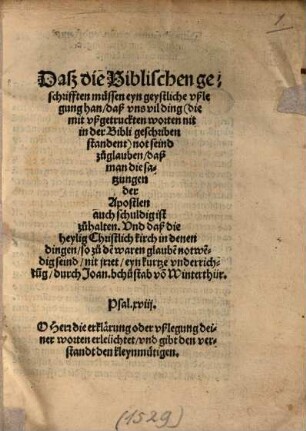 1
Daß die Biblischen ge⸗
schrifften müssen eyn geystliche vßle
gung han/daß vns vil ding (die
mit vßgetruckten worten nit
in der Bibli geschriben
standent) not seind
zůglauben/daß
man die sa⸗
tzungen
der
Apostlen
auch schuldig ist
zůhalten. Vnd daß die
heylig Christlich kirch in denen
dingen/so zů dē waren glaubē notwē⸗
dig seind/nit jrret/eyn kurtze vnderrich⸗
tūg/durch Joan. bůchstab vō Winterthür.
Psal.xviij.
O Herr die erklärung oder vßlegung dei⸗
ner worten erleüchtet/vnd gibt den ver⸗
standt den kleynmütigen.
(1529)